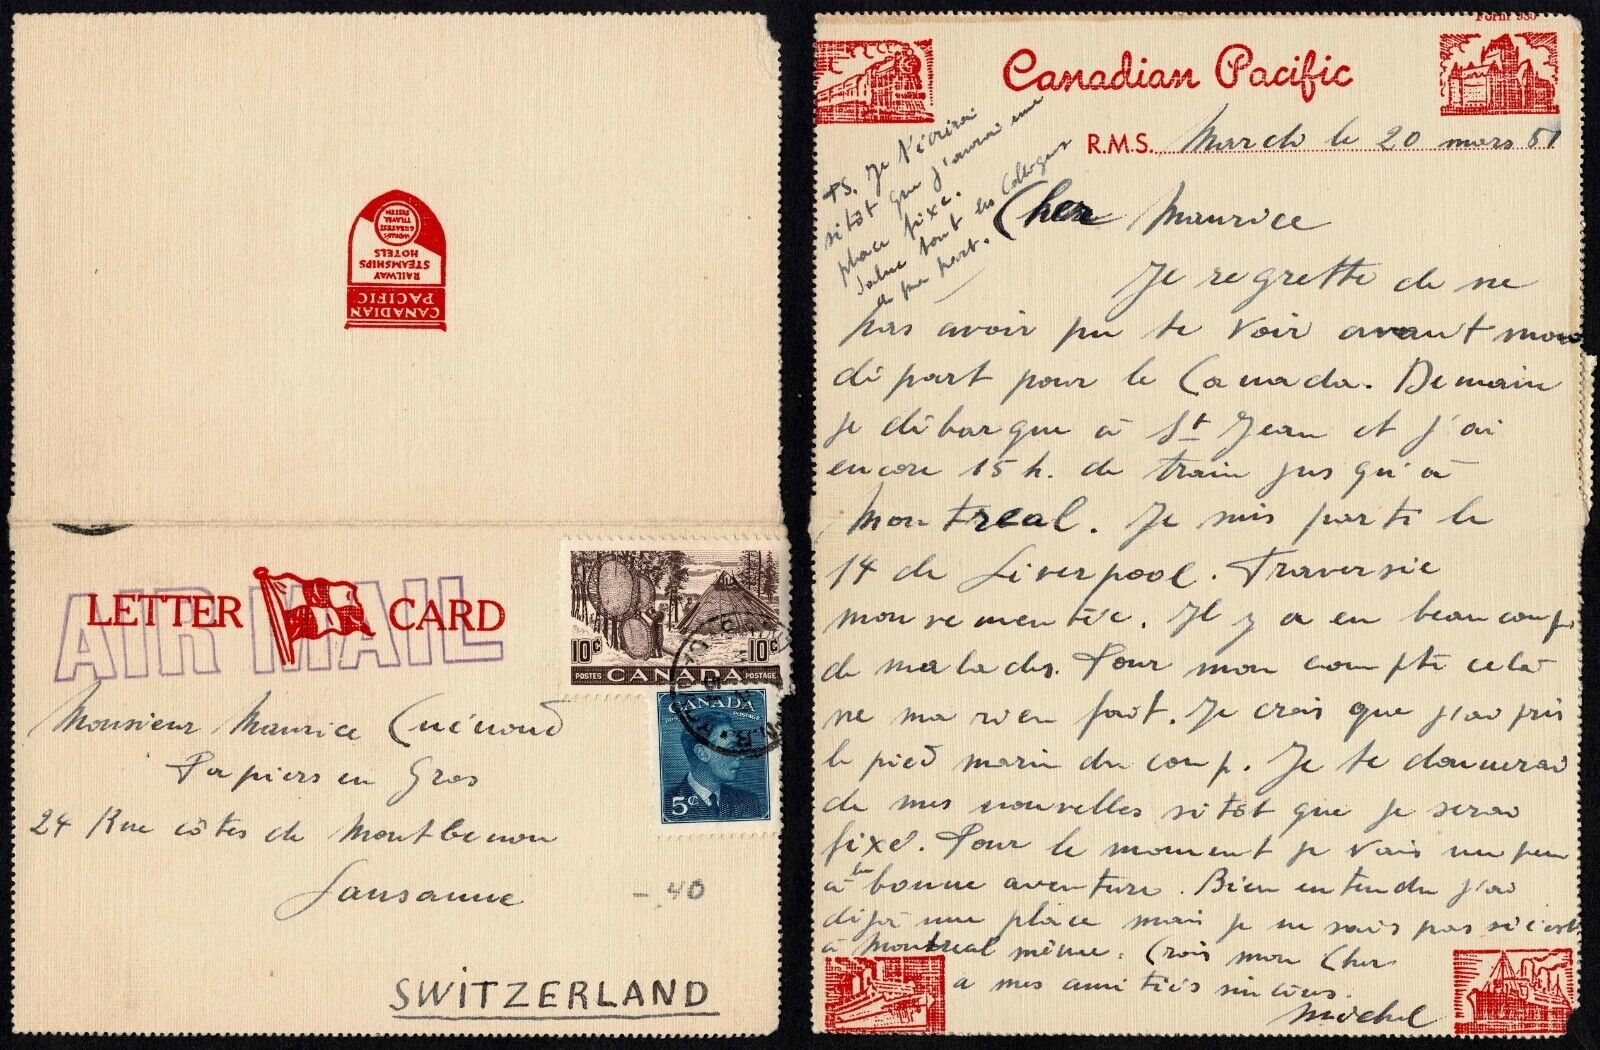 CANADIAN
PACIFIC
RAILWAY
STEAMSHIPS
HOTELS
WORLD'S
GREATEST
TRAVEL
SYSTEM
AIR MAIL
LETTER CARD
10¢ 10¢
POSTES CANADA POSTAGE
CANADA
POSTES POSTAGE
5¢
N.B.
Monsieur Maurice Cuénoud
Papiers en Gros
24 Rue côtes de Montbenon
Lausanne
-.40
SWITZERLAND
Form 930
Canadian Pacific
R.M.S. Mardi le 20 mars 51
PS. Je t'écrirai
sitôt que j'aurai une
place fixe.
Salue tout les collègues
de ma part.
Cher Maurice
Je regrette de ne
pas avoir pu te voir avant mon
départ pour le Canada. Demain
je débarque à St Jean et j'ai
encore 15 h. de train jusqu'à
Montreal. Je suis parti le
14 de Liverpool. Traversée
mouvementée. Il y a eu beaucoup
de malades. Pour mon compte cela
ne ma rien fait. Je crois que j'ai pris
le pied marin du coup. Je te donnerai
de mes nouvelles sitôt que je serai
fixé. Pour le moment je vais un peu
à la bonne aventure. Bien entendu j'ai
déjà une place mais je ne sais pas si c'est
à Montreal même. Crois mon Cher
a mes amitiés sincères.
Michel